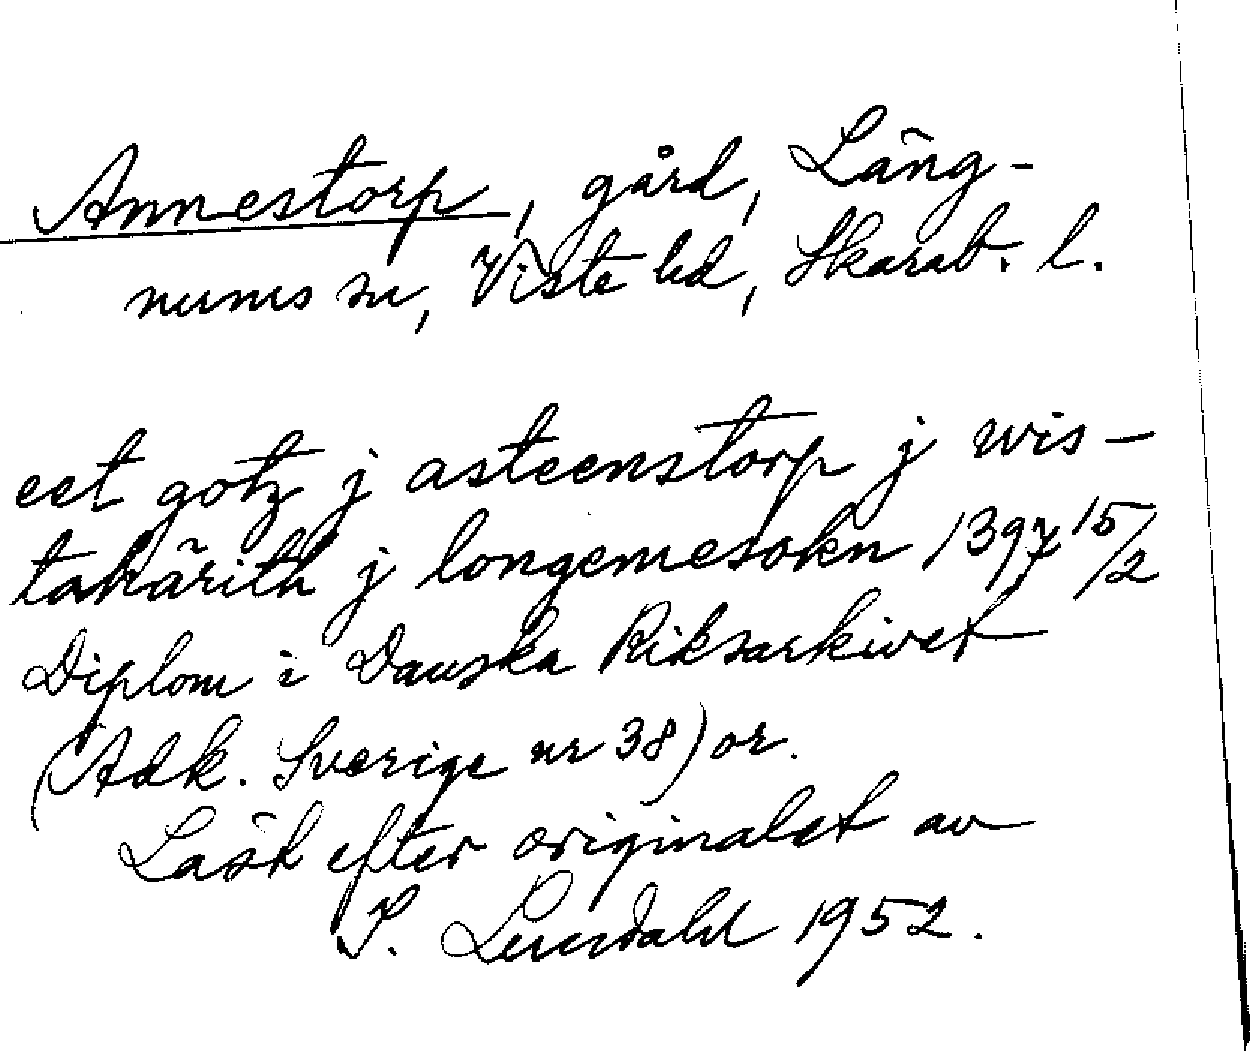 Annestorp, gård, Läng-
nums sn, Viste hd, Skarab. l.
eet gotz j asteenstorp j wis-
takärith j longemesokn 1397 15/2
Diplom i Danska Riksarkivet
(Adk. Sverige nr 38) or.
Läst efter originalet av
P. Linsdahl 1952.